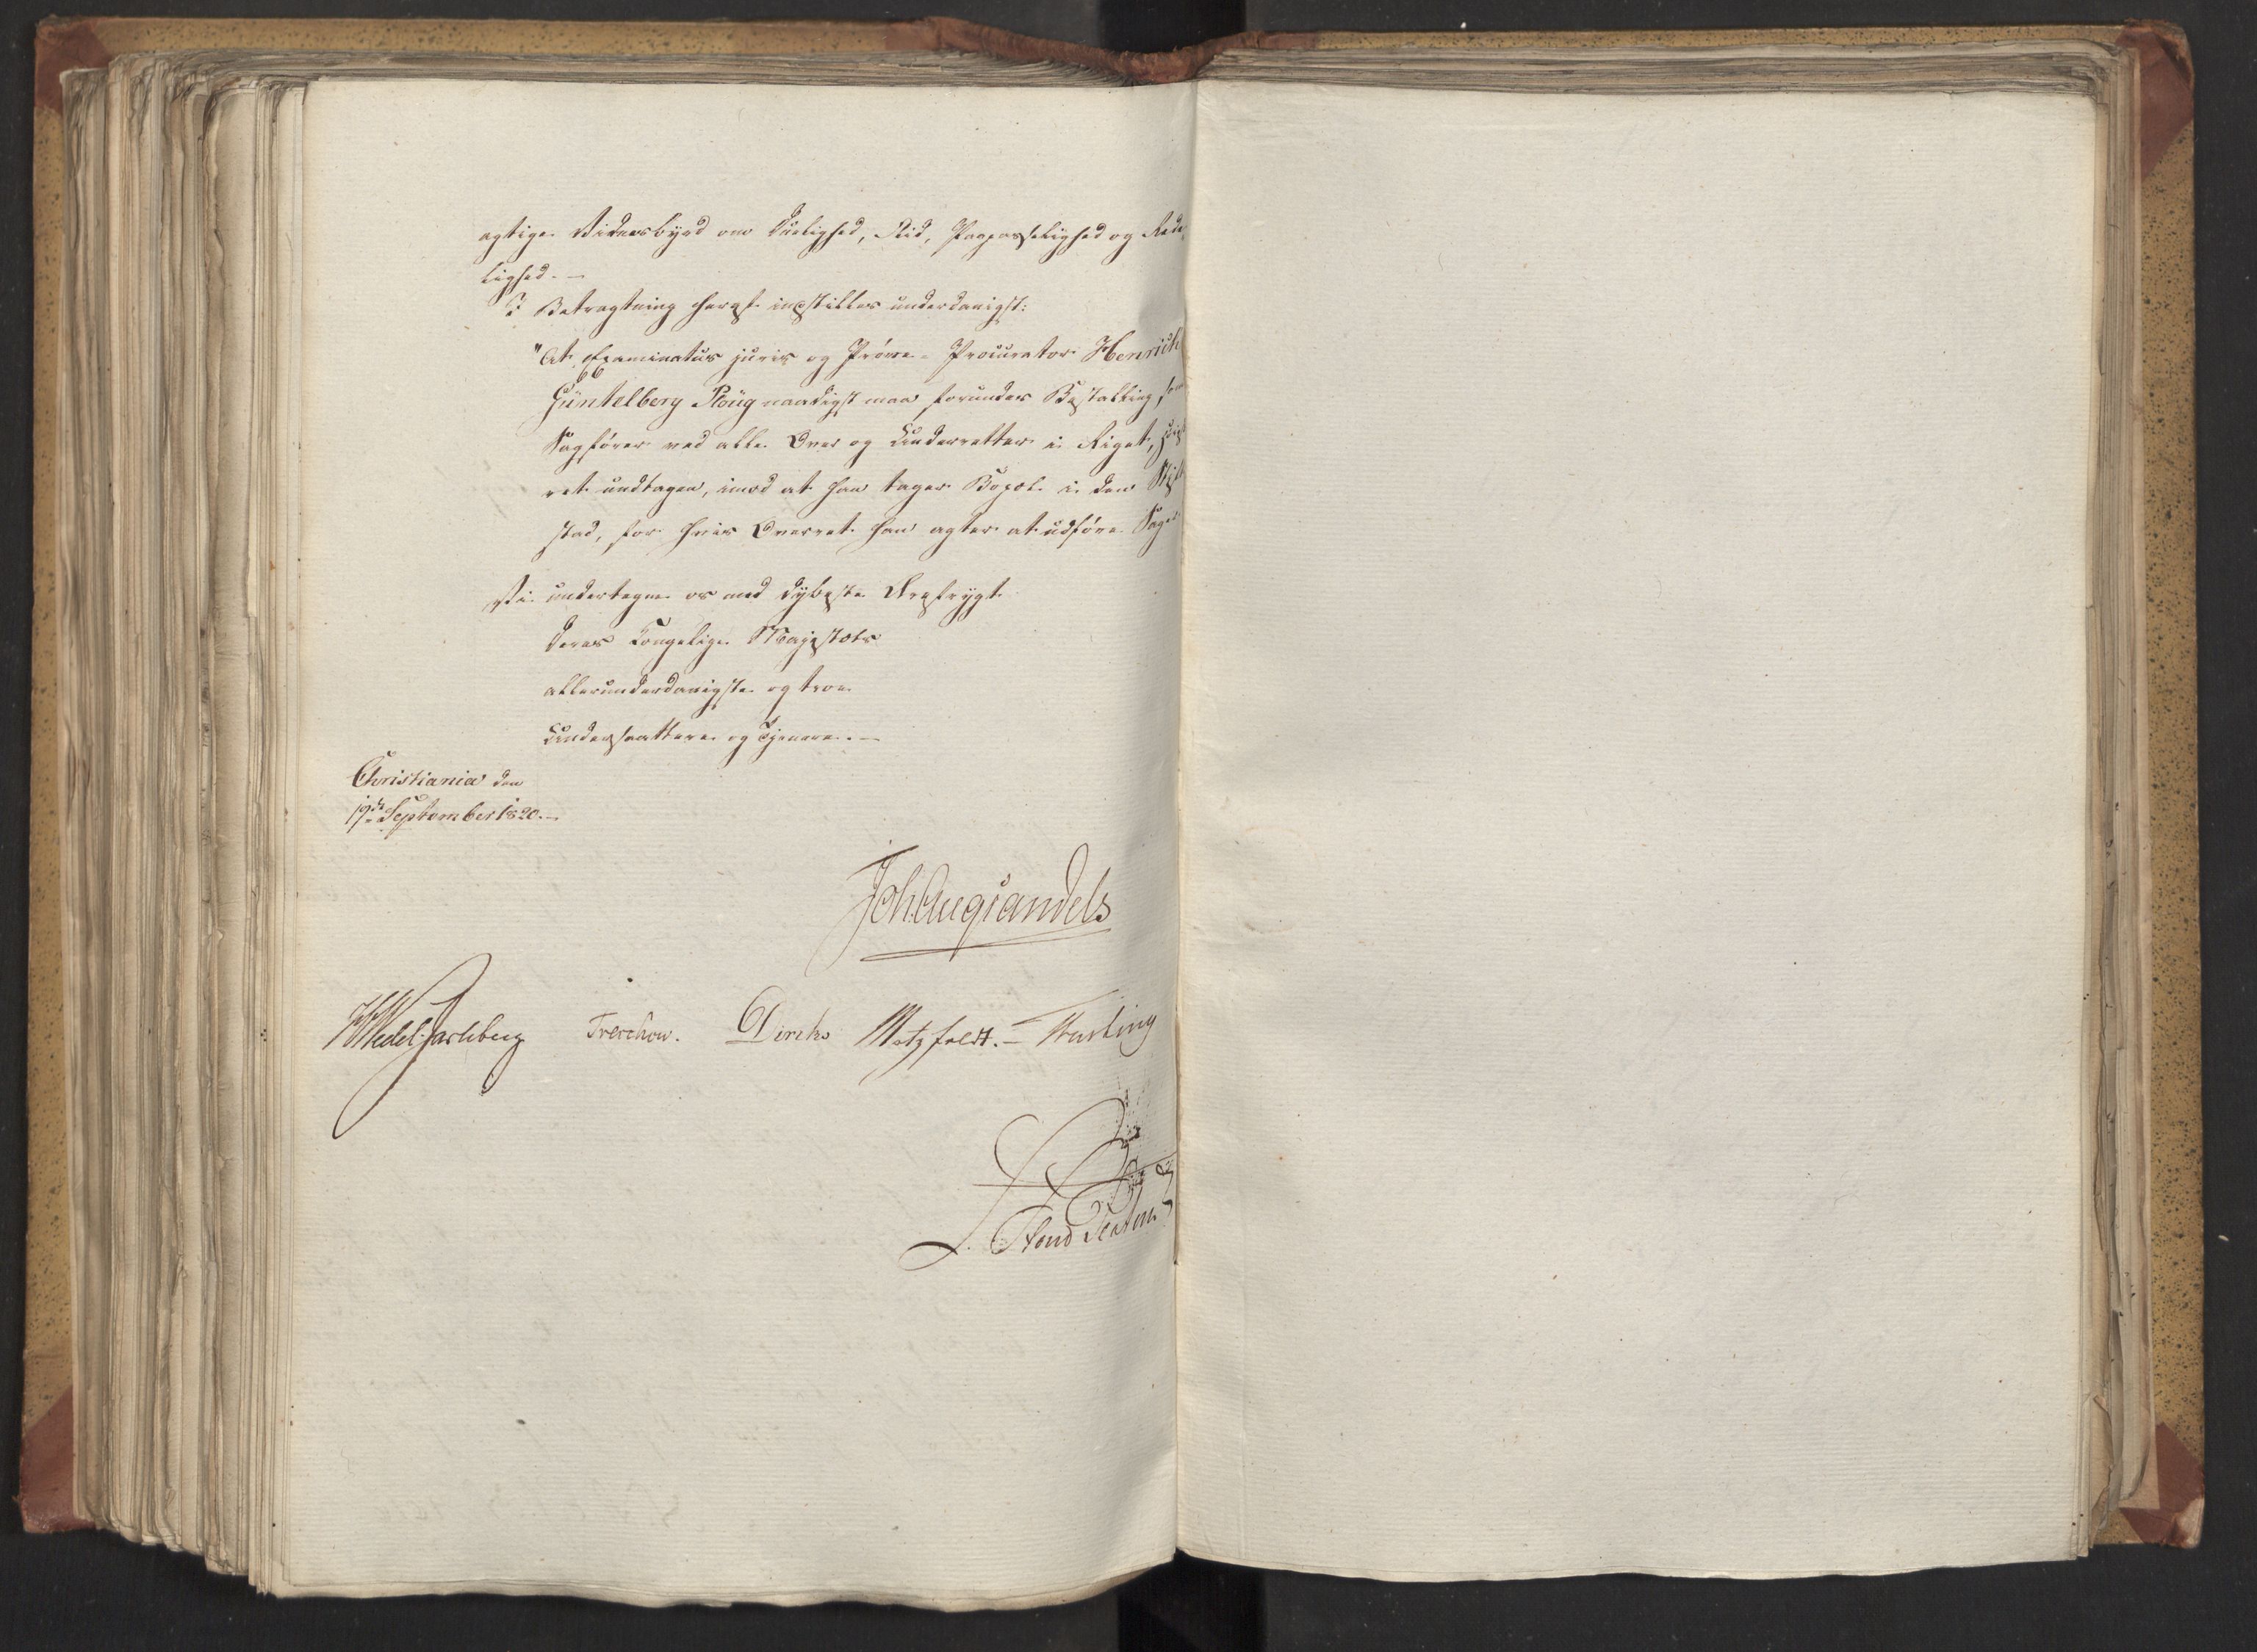 agtige Vidnesbyrd om Duelighed, Flid, Paapasselighed og Rede-
lighed. —
I Betragtning heraf instilles underdanigst:
"At Examinatus juris og Prøve-Procurator Henrich
Güntelberg Ploug naadigst maa forundes Bestalling som
Sagfører ved alle Over og Underretter i Riget, Høieste-
ret undtagen, imod at han tager Bopæl i den Stift-
stad, for hvis Overret han agter at udføre Sager
Vi undertegne os med dybeste Ærefrygt
Deres Kongelige Majestæts
allerunderdanigste og troe
Undersaattere og Tjenere. —
Christiania den
19de September 1820. —
Joh. Aug. Sandels
HWedel-Jarlsberg Treschow. Diriks Motzfeldt. — Fasting